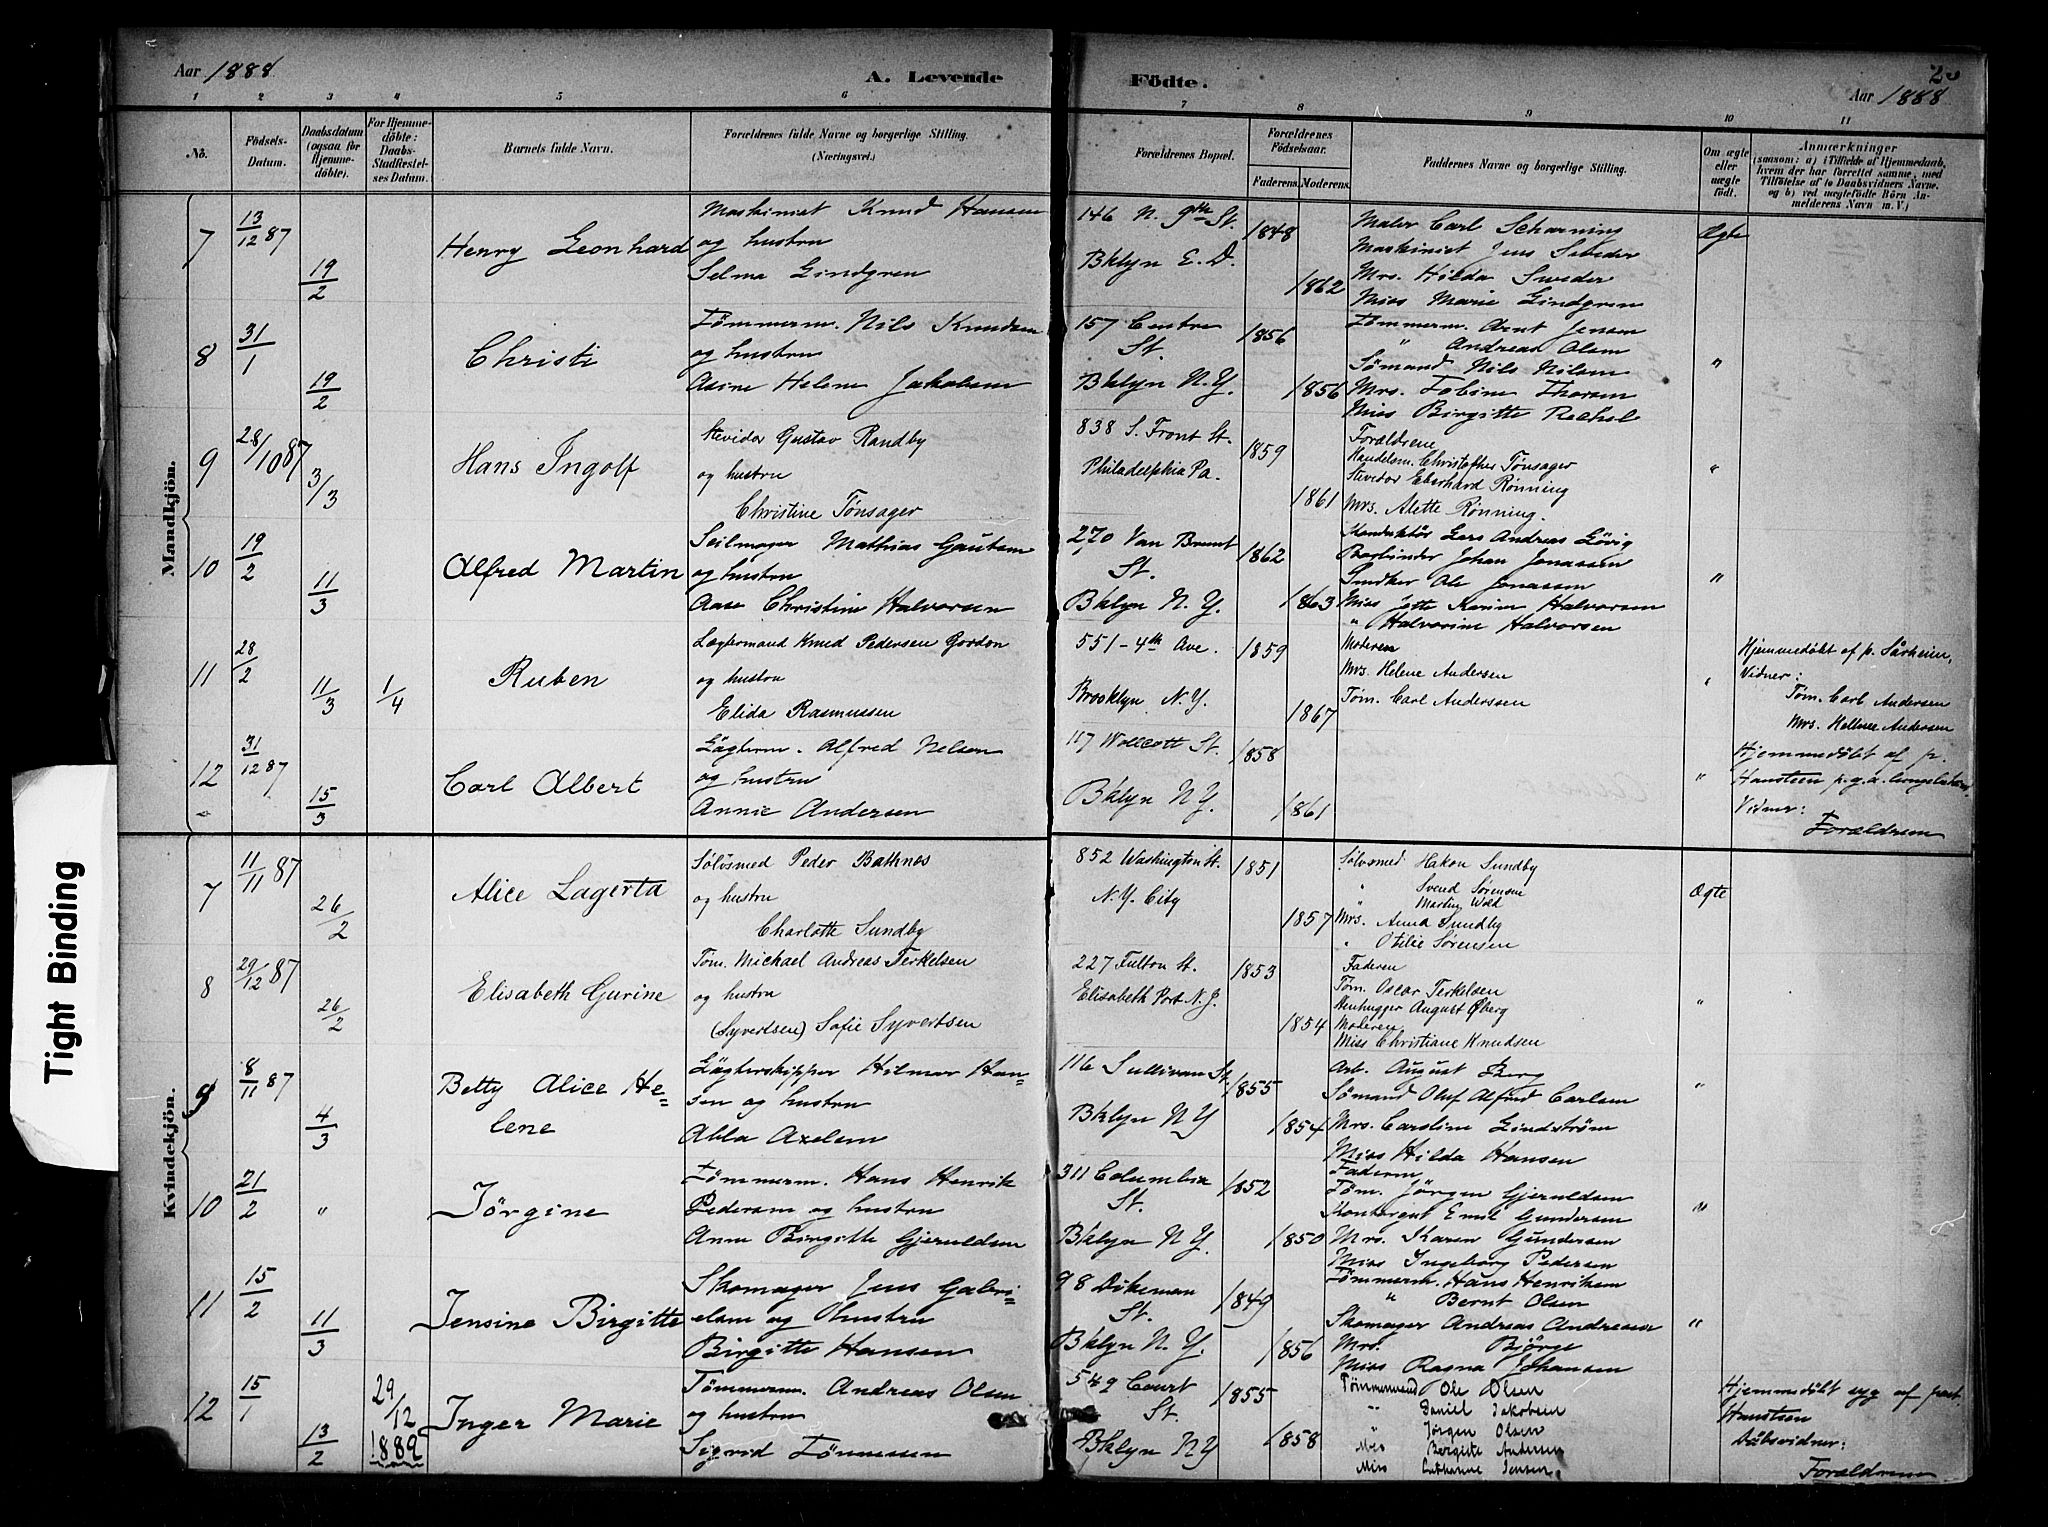 Aar 1888 A. Levende Födte. 20 Aar 1888
1 2 3 4 5 6 7 8 9 10 11
No. Födsels-Datum. Daabsdatum (ogsaa for Hjemmedöbte). For Hjemmedöbte: Daabs-Stadfæstelses Datum. Barnets fulde Navn. Forældrenes fulde Navne og borgerlige Stilling. (Næringsvei.) Forældrenes Bopæl. Forældrenes Födselsaar. Faderens. Moderens. Faddernes Navne og borgerlige Stilling. Om ægte eller uægte födt. Anmærkninger (saasom: a) i Tilfælde af Hjemmedaab, hvem der har forrettet samme, med Tilföielse af to Daabsvidners Navne. og b) ved uægtefödte Börn Anmelderens Navn m. V.)
Mandkjön.
7 13/12 87 19/2 Henry Leonhard
Maskinist Knud Hansen
og hustru
Selma Lindgren
146 N. 9th St.
Bklyn E. D.
1848 1862
Maler Carl Scharning
Maskinist Jens
Mrs. Hilda Sweder
Miss Marie Lindgren
Ægte
8 31/1 19/2 Christi
Tömmerm. Nils Knudsen
og hustru
Asine Helene Jakobsen
157 Centre
St.
Bklyn N. Y.
1856 1856
Tömmerm. Arnt Jensen
" Andreas Olsen
Sömand Nils Nilsen
Mrs. Tobine
Miss Birgitte
"
9 28/10 87 3/3 Hans Ingolf
Stevidor Gustav Randby
og hustru
Christine Tønsager
838 S. Front St.
Philadelphia Pa.
1859 1861
Forældrene
Handelsm. Christopher Tønsager
Stevidor Eberhard Rønning
Mrs. Alette Rønning.
"
10 19/2 11/3 Alfred Martin
Seilmager Mathias
og hustru
Aase Christine Halvorsen
270 Van Brunt
St.
Bklyn N. Y.
1862 1863
Lars Andreas Lövig
Bogbinder Johan Jonassen
Ole Jonassen
Miss Jette Karine Halvorsen
" Halvorine Halvorsen
"
11 28/2 11/3 1/4 Ruben
Lægtermand Knud Pedersen Gordon
og hustru
Elida Rasmussen
551 - 4th Ave.
Brooklyn N. Y.
1859 1867
Moderen
Mrs. Helene Andersen
Tøm. Carl Anderssen
"
Hjemmedøbt af p. Sårheim,
Vidner:
Tøm. Carl Andersen
Mrs. Hellene Andersen
12 31/12 87 15/3 Carl Albert
Lägterm. Alfred Nelson
og hustru
Annie Andersen
117 Wolcott St.
Bklyn N Y.
1858 1861
"
Hjemmedöbt af p.
Hansteen p. g. a.
Vidner:
Forældrene
Kvindekjön.
7 11/11 87 26/2 Alice Lagerta
Sølvsmed Peder Bathnes
og hustru
Charlotte Sundby
852 Washington St.
N. Y. City
1851 1857
Sølvsmed Hakon Sundby
" Svend Sørensen
" Martin Wold
Mrs. Anna Sundby
" Otilie Sørensen
Ægte
8 29/12 87 26/2 Elisabeth Gurine
Tøm. Michael Andreas Terkelsen
og hustru
(Syvertsen) Sofie Syvertsen
227 Fulton St.
Elisabeth Port N. J.
1853 1854
Faderen
Tøm. Oscar Terkelsen
Stenhugger August Øberg
Moderen
Miss Christiane Knudsen
"
9 8/11 87 4/3 Betty Alice He-
lene
Lägterskipper Hilmar Han-
sen og hustru
Abla Axelsen
116 Sullivan St.
Bklyn N Y
1855 1854
Arb. August Berg
Sömand Oluf Alfred Carlsen
Mrs. Caroline Lindström
Miss Hilda Hansen
"
10 21/2 " Jörgine
Tömmerm. Hans Henrik
Pedersen og hustru
Anne Birgitte Gjeruldsen
311 Columbia
St.
Bklyn N Y.
1852 1850
Faderen
Töm. Jörgen Gjeruldsen
Emil Gundersen
Mrs. Karen Gundersen
Miss Ingeborg Pedersen
"
11 15/2 11/3 Jensine Birgitte
Skomager Jens Gabri-
elsen og hustru
Birgitte Hansen
98 Dikeman
St.
Bklyn N. Y.
1849 1856
Tömmerm. Hans Henriksen
" Bernt Olsen
Skomager Andreas Andresen
Mrs. Björge
Miss Ragna Johansen
"
12 15/1 13/2 29/12 1889 Inger Marie
Tömmerm. Andreas Olsen
og hustru
Sigrid Tönnessen
549 Court
St.
Bklyn N Y
1855 1858
Tömmermand Ole Olsen
" Daniel Jakobsen
" Jörgen Olsen
Miss Bergitte Andersen
Miss Cathrine Jensen
Hjemmedöbt af past.
Hansteen
Dåbsvidner:
Forældrene
Tight Binding